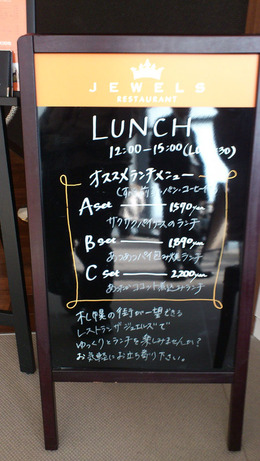 JEWELS
RESTAURANT
LUNCH
12:00-15:00 (L.O 14:30)
オススメランチメニュー
パン・コーヒー付
A set 1,590yen
サクサクパイソースのランチ
B set 1,890yen
あつあつパイ包み焼ランチ
C set 2,200yen
ココット煮込みランチ
札幌の街が一望できる
レストランザジュエルズで
ゆっくりとランチを楽しみませんか?
お気軽にお立ち寄り下さい。